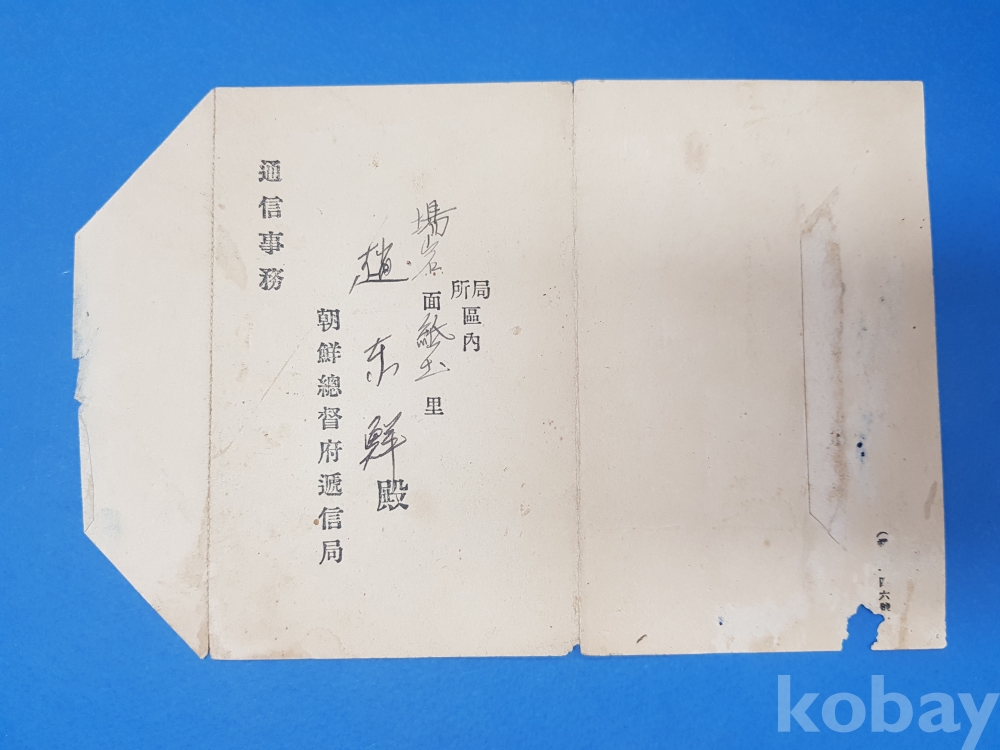 局所區內
場岩面紙土里
趙东鮮殿
朝鮮總督府遞信局
通信事務
六號
kobay